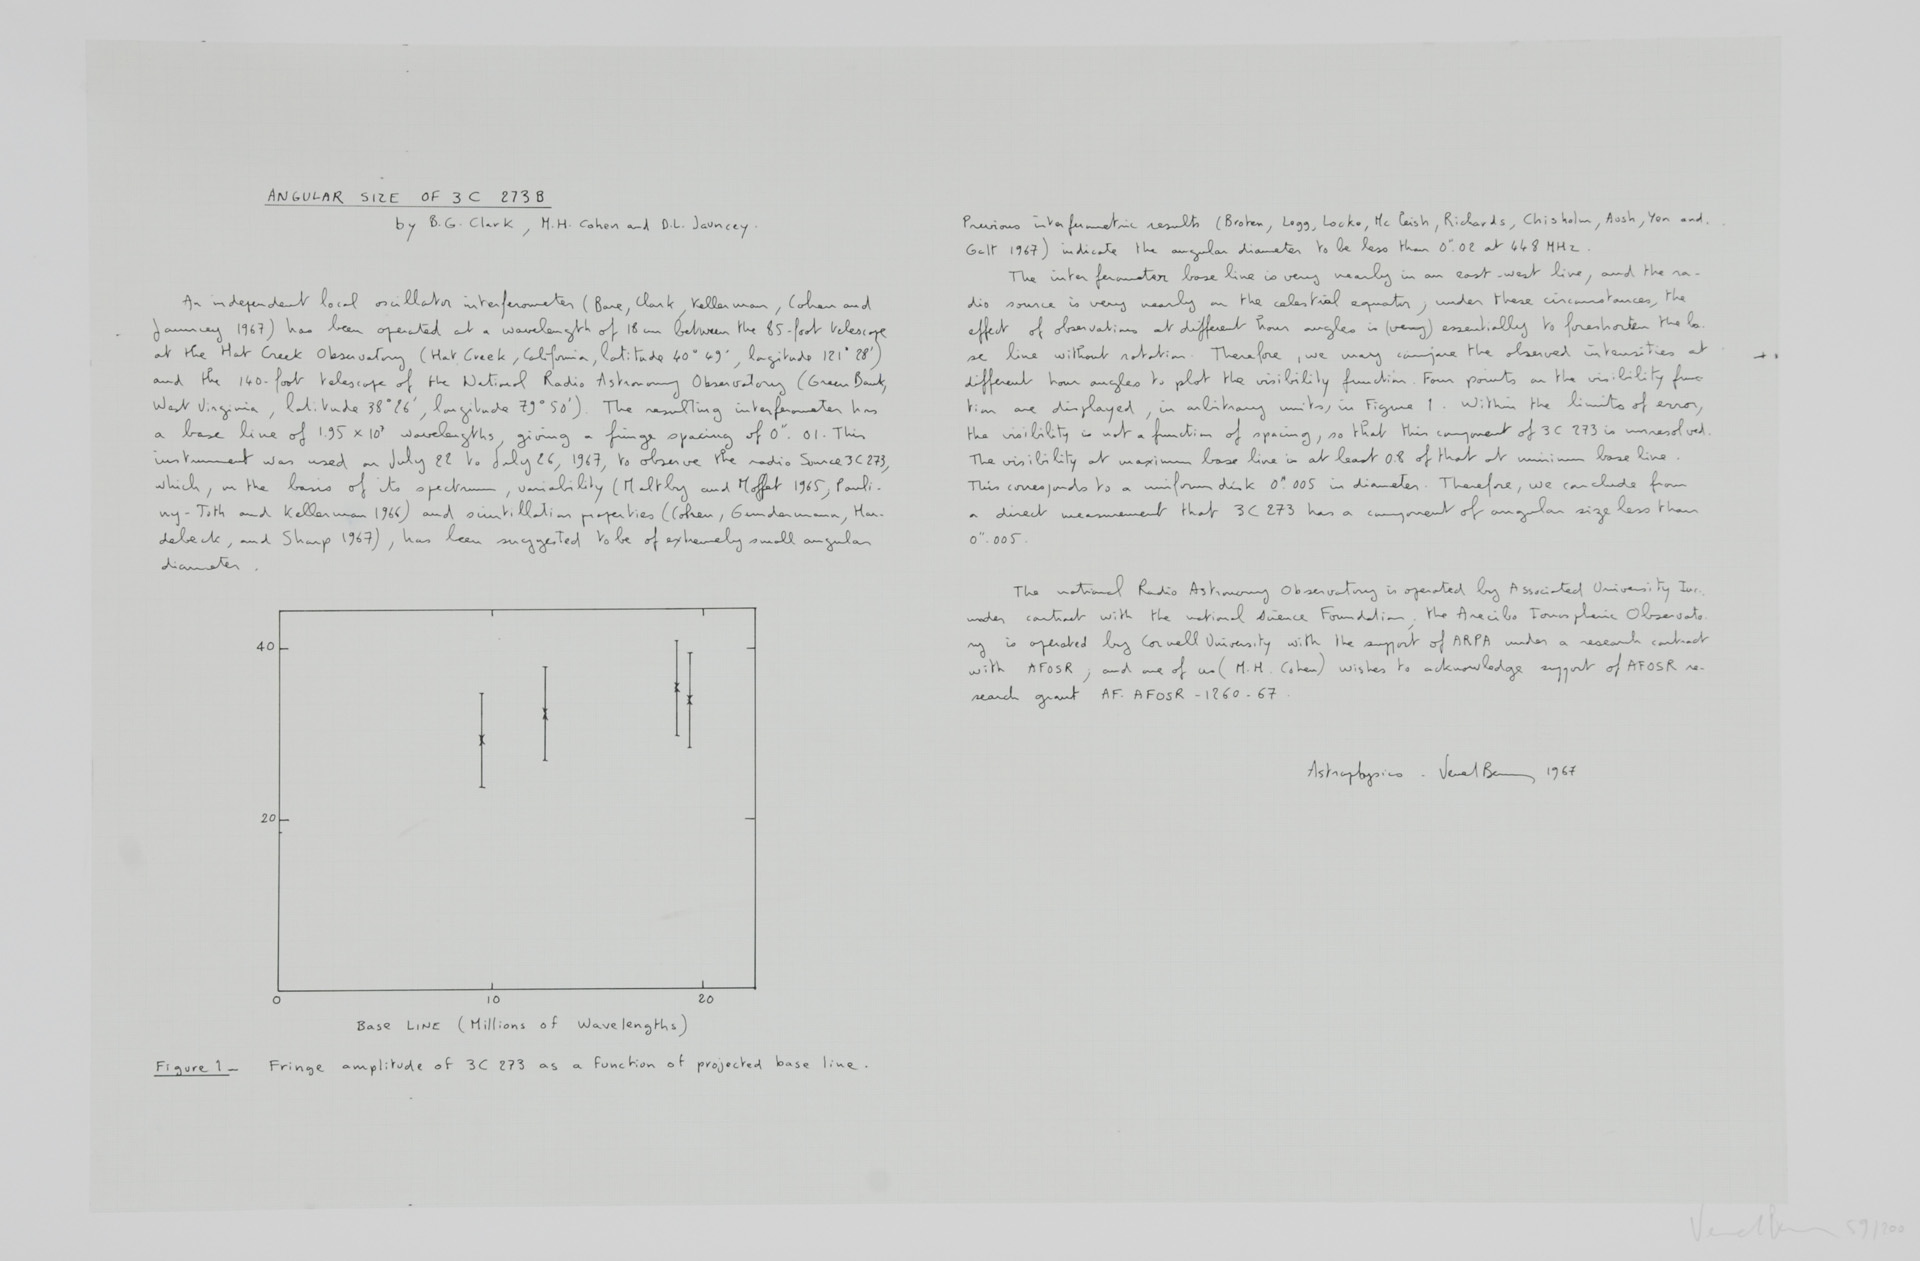 ANGULAR SIZE OF 3C 273B
by B.G. Clark, M.H. Cohen and D.L. Jauncey.
An independent local oscillator interferometer (Bare, Clark, Kellerman, Cohen and
Jauncey 1967) has been operated at a wavelength of 18 cm between the 85-foot telescope
at the Hat Creek Observatory (Hat Creek, California, latitude 40° 49', longitude 121° 28')
and the 140-foot telescope of the National Radio Astronomy Observatory (Green Bank,
West Virginia, latitude 38° 26', longitude 79° 50'). The resulting interferometer has
a base line of 1.95 × 10⁷ wavelengths, giving a fringe spacing of 0". 01. This
instrument was used on July 22 to July 26, 1967, to observe the radio Source 3C 273,
which, on the basis of its spectrum, variability (Maltby and Moffet 1965, Pauli-
ny-Toth and Kellerman 1966) and scintillation properties (Cohen, Gundermann, Har-
debeck, and Sharp 1967), has been suggested to be of extremely small angular
diameter.
40
20
0 10 20
Base LINE (Millions of Wavelengths)
Figure 1 - Fringe amplitude of 3C 273 as a function of projected base line.
Previous interferometric results (Broten, Legg, Locke, Mc Leish, Richards, Chisholm, Aush, Yen and
Galt 1967) indicate the angular diameter to be less than 0".02 at 448 MHz.
The interferometer base line is very nearly in an east-west line, and the ra-
dio source is very nearly on the celestial equator; under these circumstances, the
effect of observations at different hour angles is (very) essentially to foreshorten the ba-
se line without rotation. Therefore, we may compare the observed intensities at
different hour angles to plot the visibility function. Four points on the visibility func
tion are displayed, in arbitrary units, in Figure 1. Within the limits of error,
the visibility is not a function of spacing, so that this component of 3C 273 is unresolved.
The visibility at maximum base line is at least 0.8 of that at minimum base line.
This corresponds to a uniform disk 0".005 in diameter. Therefore, we conclude from
a direct measurement that 3C 273 has a component of angular size less than
0".005.
The national Radio Astronomy Observatory is operated by Associated University Inc.
under contract with the national Science Foundation; the Arecibo Ionospheric Observato.
ry is operated by Cornell University with the support of ARPA under a research contract
with AFOSR; and one of us (M.H. Cohen) wishes to acknowledge support of AFOSR re-
search grant AF. AFOSR - 1260 - 67.
Astrophysics. Venet 1967
59/200